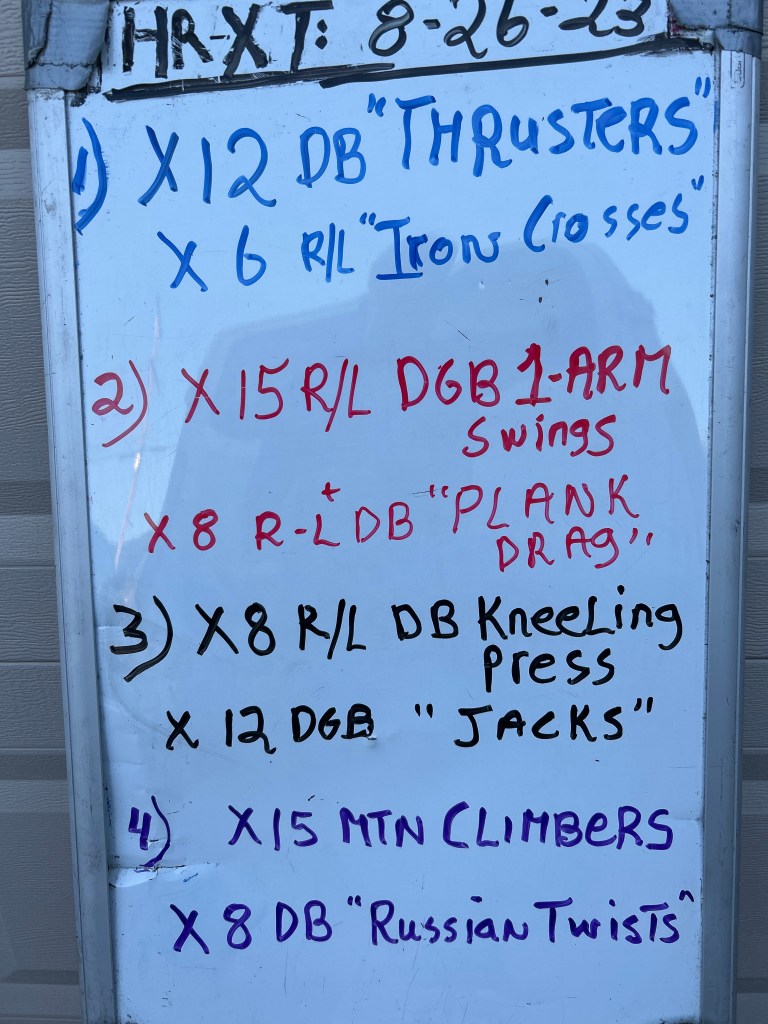 HR-XT: 8-26-23
1) X 12 DB "THRUSTERS"
X 6 R/L "Iron Crosses"
2) X 15 R/L DGB 1-ARM
Swings
X 8 R-L+ DB "PLANK
DRAg"
3) X 8 R/L DB KneeLing
press
X 12 DGB "JACKS"
4) X15 MTN CLIMBERS
X 8 DB "Russian Twists"